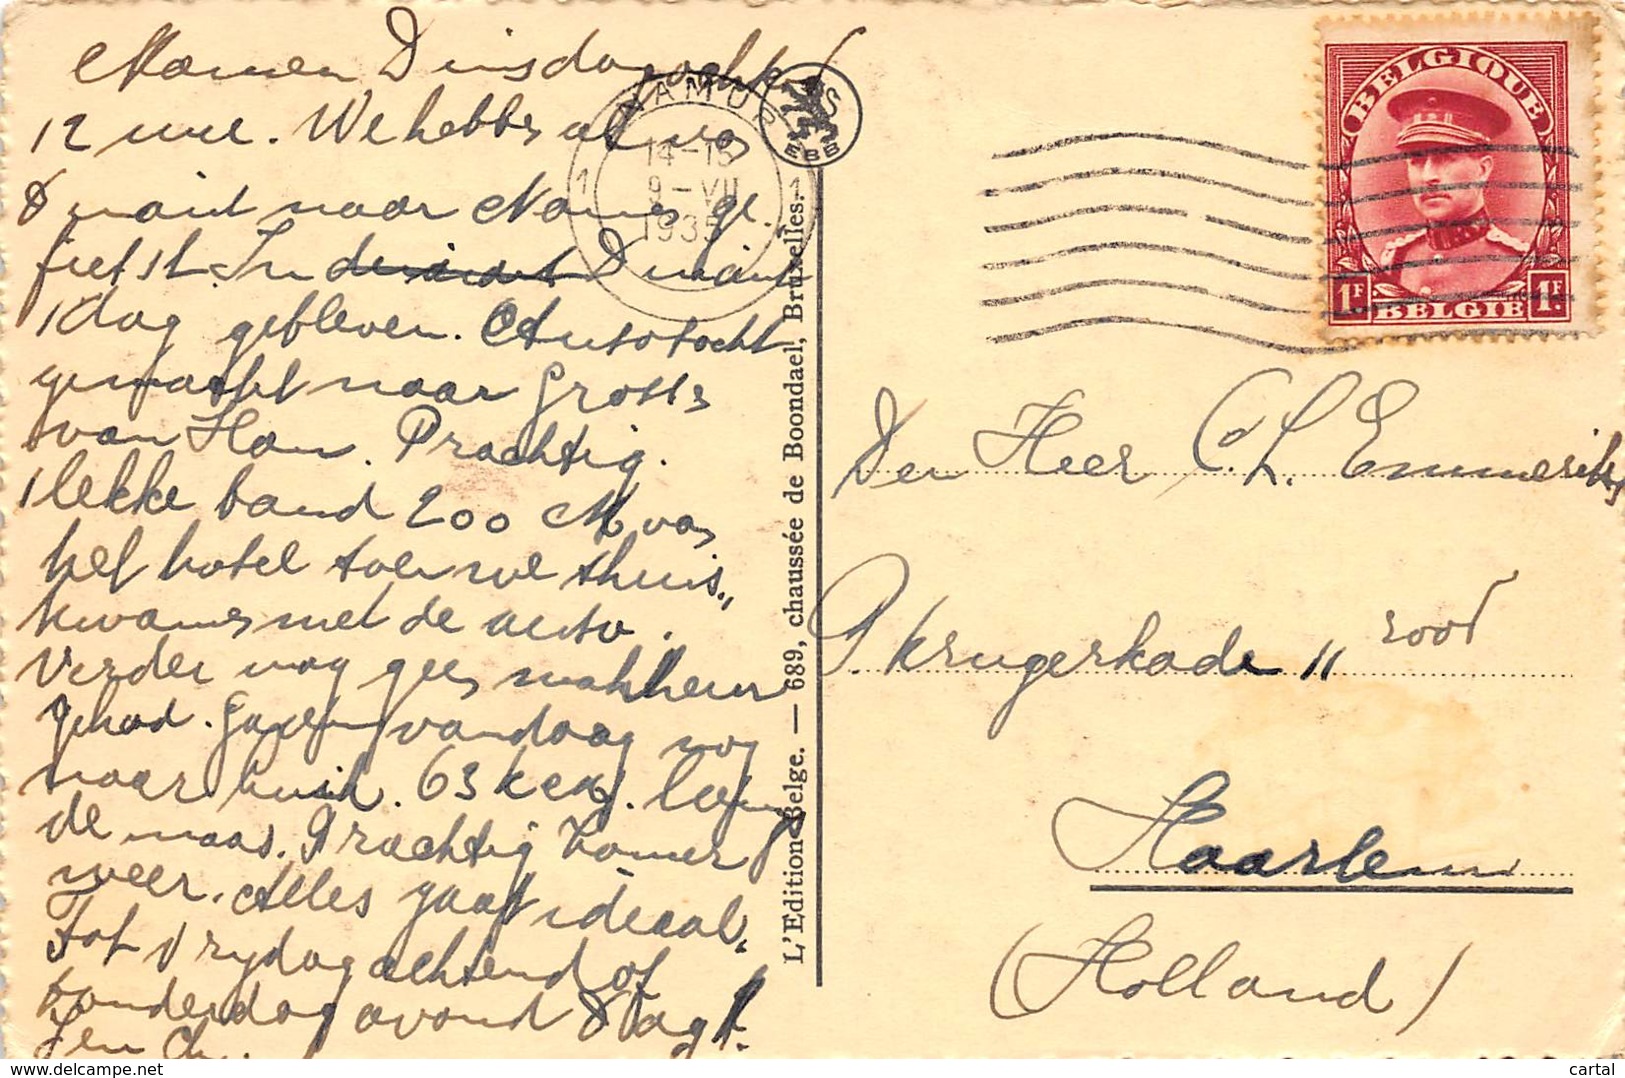 Namen Dinsdagochtend
12 uur. We hebben al van
Dinant naar Namen ge-
fietst. In Dinant
1 dag gebleven. Autotocht
gemaakt naar Grotten
van Han. Prachtig.
1 lekke band 200 M van
het hotel toen we thuis
kwamen met de auto.
Verder nog geen malheur
gehad. Gaxen vandaag nog
naar Luik. 63 k langs
de maas. Prachtig zomer
weer. Alles gaat ideaal.
Tot Vrydagochtend of
donderdag avond Dag!
Jen
NAMUR
1 14-15 1
9-VII
1935
EBB
L'Edition Belge. — 689, chaussée de Boondael, Bruxelles.
BELGIQUE
1F 1F
BELGIE
Den Heer C. L. Emmeriks
P. Krugerkade 11 rood
Haarlem
(Holland)
https://www.delcampe.net
cartal